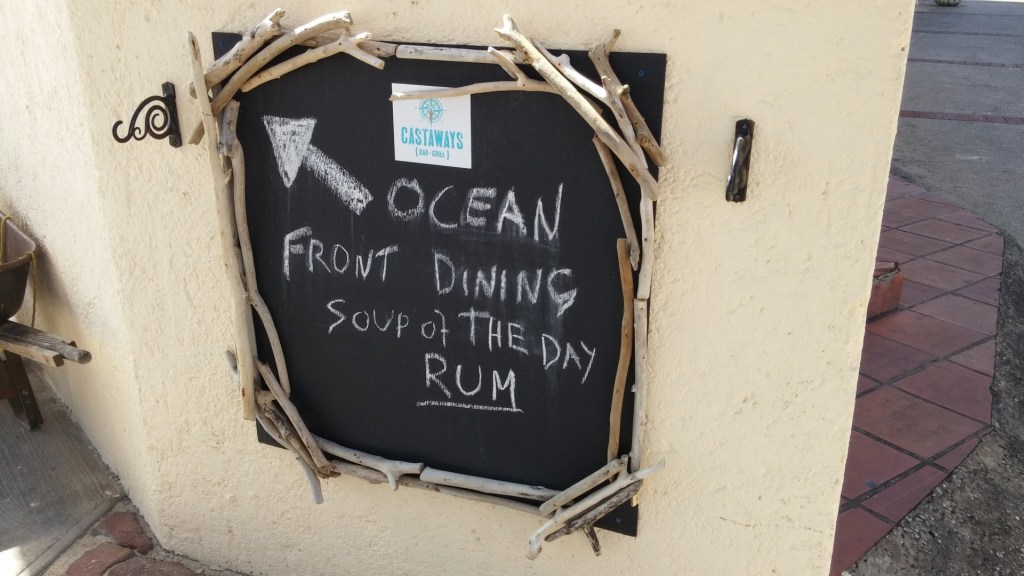 CASTAWAYS
[BAR • GRILL]
OCEAN
FRONT DINING
SOUP of THE DAY
RUM